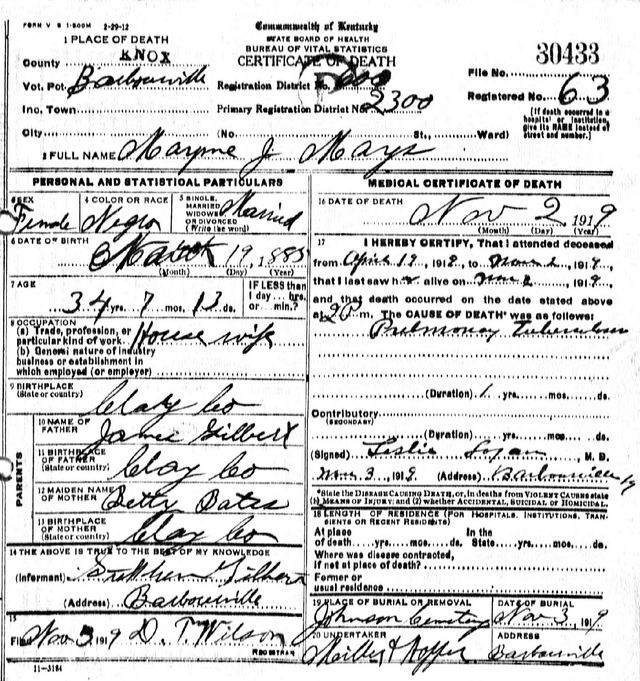 FORM V S 1-500M 2-29-12
Commonwealth of Kentucky
STATE BOARD OF HEALTH
BUREAU OF VITAL STATISTICS
CERTIFICATE OF DEATH
1 PLACE OF DEATH
County KNOX
Vot. Pct. Barbourville
Inc. Town
City (No St., Ward)
Registration District No.
Primary Registration District No. 2300
30433
File No.
Registered No. 63
(If death occurred in a
hospital or institution,
give its NAME instead of
street and number.)
2 FULL NAME Mayme J Mays
PERSONAL AND STATISTICAL PARTICULARS
3 SEX
Female
4 COLOR OR RACE
Negro
5 SINGLE,
MARRIED
WIDOWED
OR DIVORCED
(Write the word)
Married
6 DATE OF BIRTH
March 19, 1885
(Month) (Day) (Year)
7 AGE
34 yrs. 7 mos. 13 ds.
IF LESS than
1 day... hrs.
or min.?
8 OCCUPATION
(a) Trade, profession, or
particular kind of work House wife
(b) General nature of industry
business or establishment in
which employed (or employer)
9 BIRTHPLACE
(State or country)
Clay Co
PARENTS
10 NAME OF
FATHER
Gilbert
11 BIRTHPLACE
OF FATHER
(State or country)
Clay Co
12 MAIDEN NAME
OF MOTHER
Betty Bates
13 BIRTHPLACE
OF MOTHER
(State or country)
Clay Co
14 THE ABOVE IS TRUE TO THE BEST OF MY KNOWLEDGE
(Informant) Gilbert
(Address) Barbourville
15
Filed Nov 3 1919 D. T. Wilson
REGISTRAR
11-3184
MEDICAL CERTIFICATE OF DEATH
16 DATE OF DEATH
Nov 2 1919
(Month) (Day) (Year)
17 I HEREBY CERTIFY, That I attended deceased
from April 19, 191 , to Nov 2, 1919,
that I last saw alive on Nov 2, 1919,
and that death occurred on the date stated above
at 2 P m. The CAUSE OF DEATH* was as follows:
Pulmonary Tuberculosis
(Duration) 1 yrs. mos. ds.
Contributory
(SECONDARY)
(Duration) yrs. mos. ds.
(Signed) Leslie Logan M. D.
Nov 3, 1919 (Address) Barbourville Ky
*State the DISEASE CAUSING DEATH, or, in deaths from VIOLENT CAUSES state
(1) MEANS OF INJURY; and (2) whether ACCIDENTAL, SUICIDAL or HOMICIDAL.
18 LENGTH OF RESIDENCE (FOR HOSPITALS, INSTITUTIONS, TRAN-
SIENTS OR RECENT RESIDENTS)
At place In the
of death yrs. mos. ds. State yrs. mos. ds.
Where was disease contracted,
if not at place of death?
Former or
usual residence
19 PLACE OF BURIAL OR REMOVAL
Johnson Cemetery
DATE OF BURIAL
Nov 3, 1919
20 UNDERTAKER
Miller &
ADDRESS
Barbourville